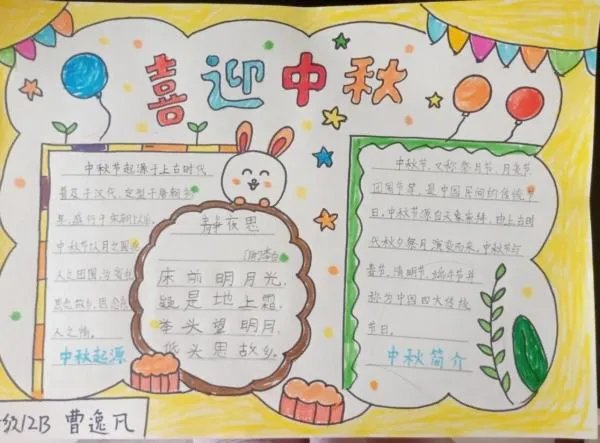 喜迎中秋
中秋节起源于上古时代
普及于汉代,定型于唐朝
是,盛行于宋朝以
中秋节以月之圆
人之团圆,为寄
思念故乡,思念
人之情。
中秋起源
静夜思
(唐)李白
床前明月光,
疑是地上霜。
举头望明月,
低头思故乡。
中秋节,又称祭月节、月
团圆节等,是中国民间的传统节
日。中秋节源自天象崇拜,由上古时
代秋夕祭月演变而来。中秋节与
春节、清明节、端午节并
称为中国四大传统
节日。
中秋简介
级12B 曹逸凡